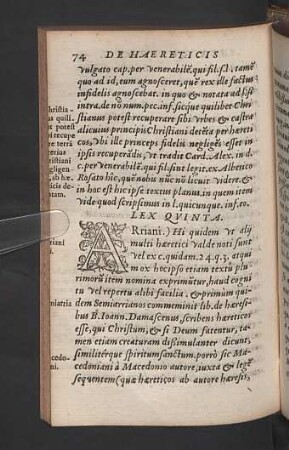 74 DE HAERETICIS
vulgato cap. per venerabilẽ. qui fil. s.l. tamẽ
quo ad id, eum agnosceret, quẽ rex ille factus
infidelis agnoscebat. in quo & notata ad fi.s
intra. de nõ num. pec. inf. sicque quilibet Chri
stianus potest recuperare sibi vrbes & castra
alicuius principis Christiani detẽta per hæreti
cos, vbi ille princeps fidelis negligẽs esset in
ipsis recuperãdis, vt tradit Card. Alex. in d.
c. per venerabilẽ. qui fil. sint legit. ex Alberico
Rosato hic, quẽ nobis nũc nõ licuit videre. &
in hac est hic ipse textus planus. in quem item
vide quod scripsimus in l. quicunque. inf. eo.
LEX QVINTA.
ARriani.) Hi quidem vt alij
multi hæretici valde noti sunt
vel ex c. quidam. 24. q. 3. atqui
mox hoc ipso etiam textu plu
rimorũ item nomina exprimũtur, haud cogni
tu vel repertu alibi facilia, & primum qui
dem Semiarrianos commeminit lib. de hæresib.
B. Ioann. Damascenus, scribens hæreticos
esse, qui Christum, & si Deum fatentur, ta-
men etiam creaturam dissimulanter dicunt,
similiterque spiritum sanctum. porrò sic Ma
cedoniani à Macedonio autore, iuxta & legẽ
sequentem (quæ hæreticos ab autore hæresis,